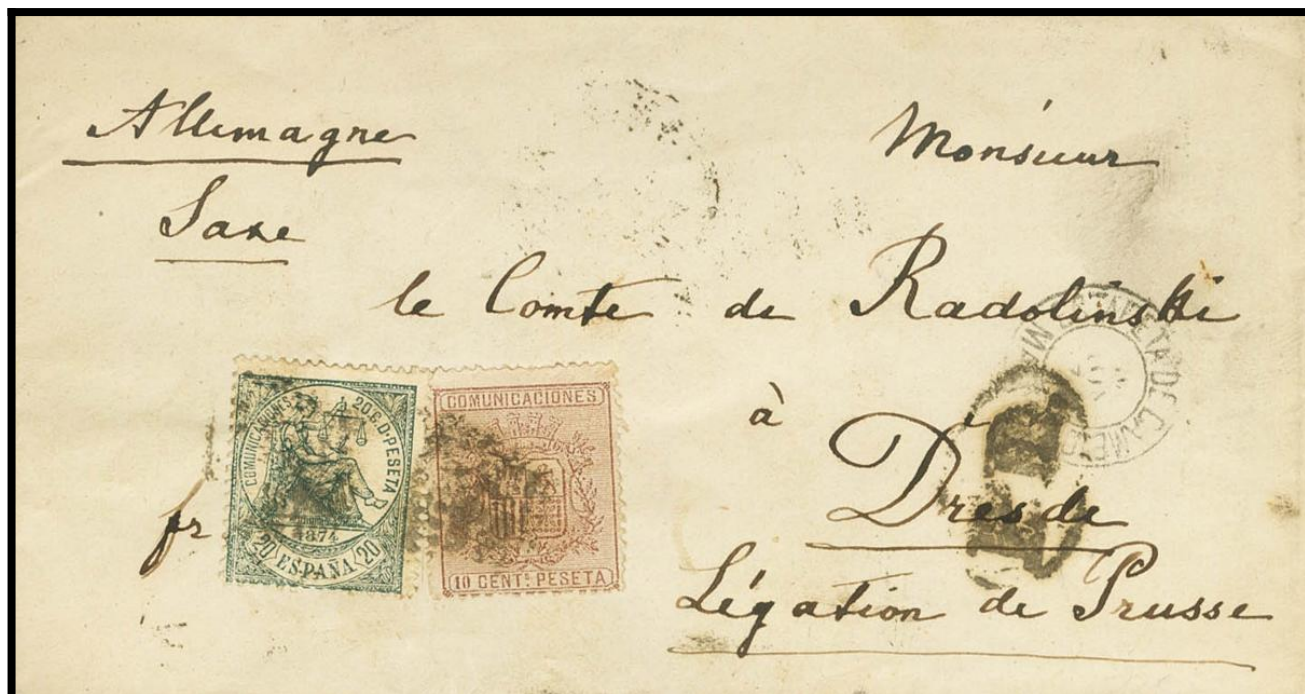 Allemagne
Saxe
Monsieur
le Comte de Radolinski
à
Dresde
Légation de Prusse
fr
COMUNICACIONES 20 C. D PESETA
1874
20 ESPAÑA 20
COMUNICACIONES
10 CENT.S PESETA
ESTAFETA DE CAMBIO